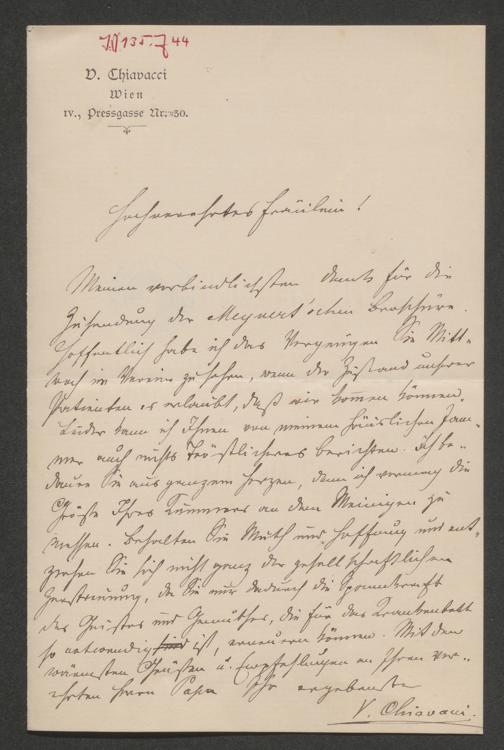 IN 135.744
V. Chiavacci
Wien
IV., Pressgasse Nr. 30.
Hochverehrtes Fräulein!
Meinen verbindlichsten Dank für die
Zusendung der Meynert'schen Broschüre.
Hoffentlich habe ich das Vergnügen Sie Mitt-
woch im Verein zu sehen, wenn der Zustand unserer
Patienten es erlaubt, daß wir kommen können.
Leider kann ich Ihnen von meinem häuslichen Jam-
mer auch nichts Tröstlicheres berichten. Ich be-
daure Sie aus ganzem Herzen, denn ich vermag die
Größe Ihres Kummers an dem Meinigen zu
messen. Behalten Sie Muth und Hoffnung und ent-
ziehen Sie sich nicht ganz der gesellschaftlichen
Zerstreuung, da Sie nur dadurch die Spannkraft
des Geistes und Gemüthes, die für das Krankenbett
so notwendig ist, erneuern können. Mit den
wärmsten Grüßen u. Empfehlungen an Ihren ver-
ehrten Herrn Papa Ihr ergebenster
V. Chiavacci.